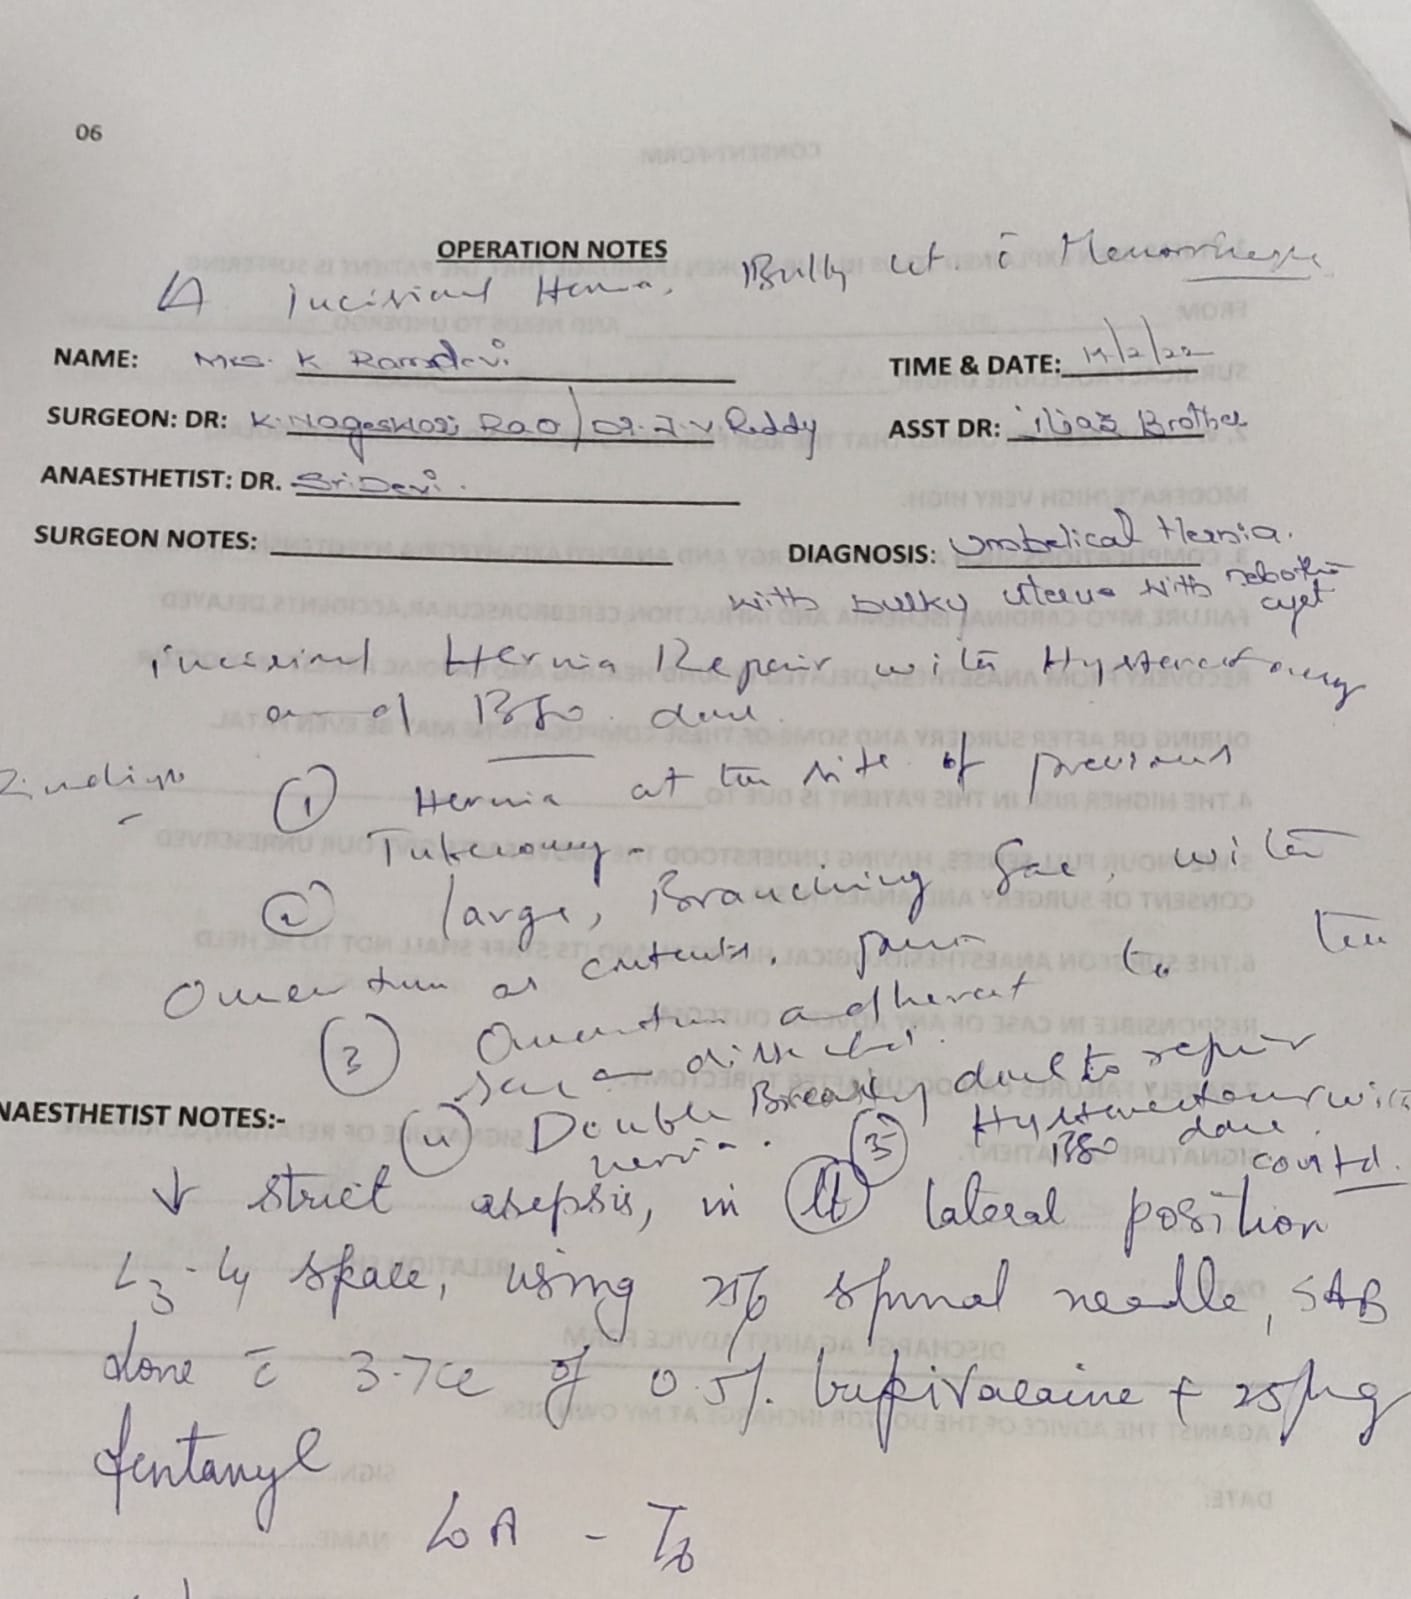 06
OPERATION NOTES
Δ Incisional Hernia. Bulky ut. c̄ Menorrhagia
NAME: Mrs. K Ramadevi
TIME & DATE: /2/22
SURGEON: DR: K. Nageswar Rao / Dr. J. V. Reddy
ASST DR: iliaz Brother
ANAESTHETIST: DR. SriDevi.
SURGEON NOTES:
DIAGNOSIS: Umbelical Hernia.
with bulky uterus with nebothian
cyst
incisional Hernia Repair with Hysterectomy
and BSO. done.
Findings
① Hernia at the site of previous
Tubectomy.
② large, Branching Sac, with
Omentum as contents.
③ Omentum adherent to the
sac dissected.
NAESTHETIST NOTES:-
④ Double Breasting done to repair
hernia.
⑤ Hysterectomy with
BSO done.
contd.
↓ strict asepsis, in lt lateral position
L3-L4 space, using 25G spinal needle, SAB
done c̄ 3.7cc of 0.5% bupivacaine + 25µg
fentanyl
LOA - T6